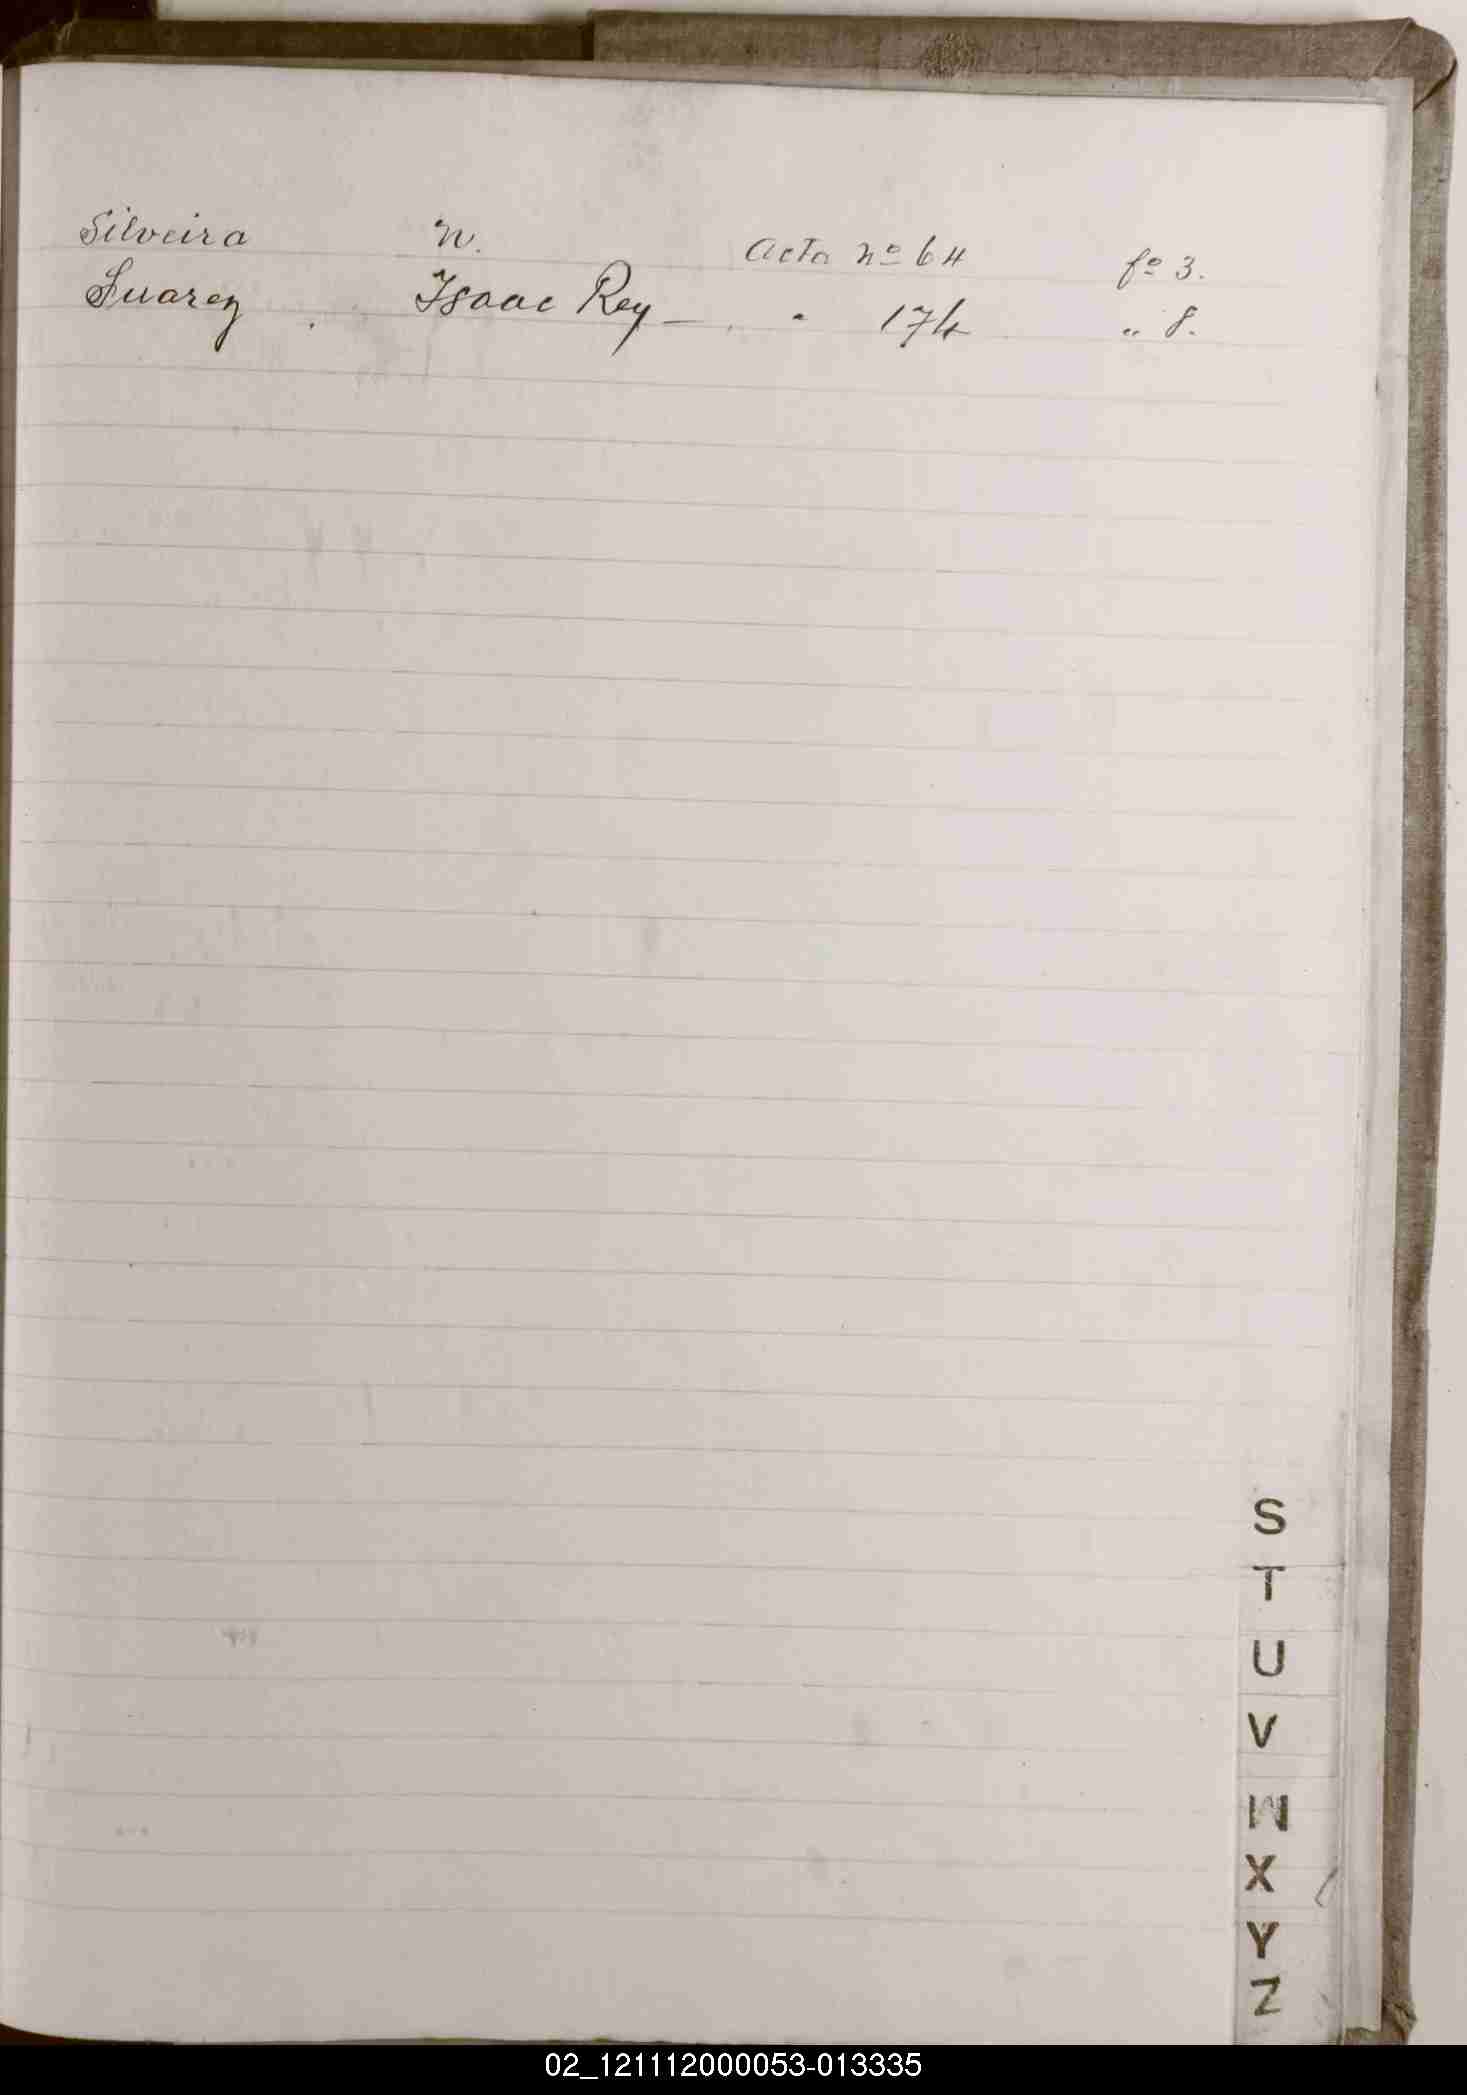 Silveira N. Acta nº 64 fº 3.
Suarez Isaac Rey — " 174 " 8.
S
T
U
V
W
X
Y
Z
02_121112000053-013335